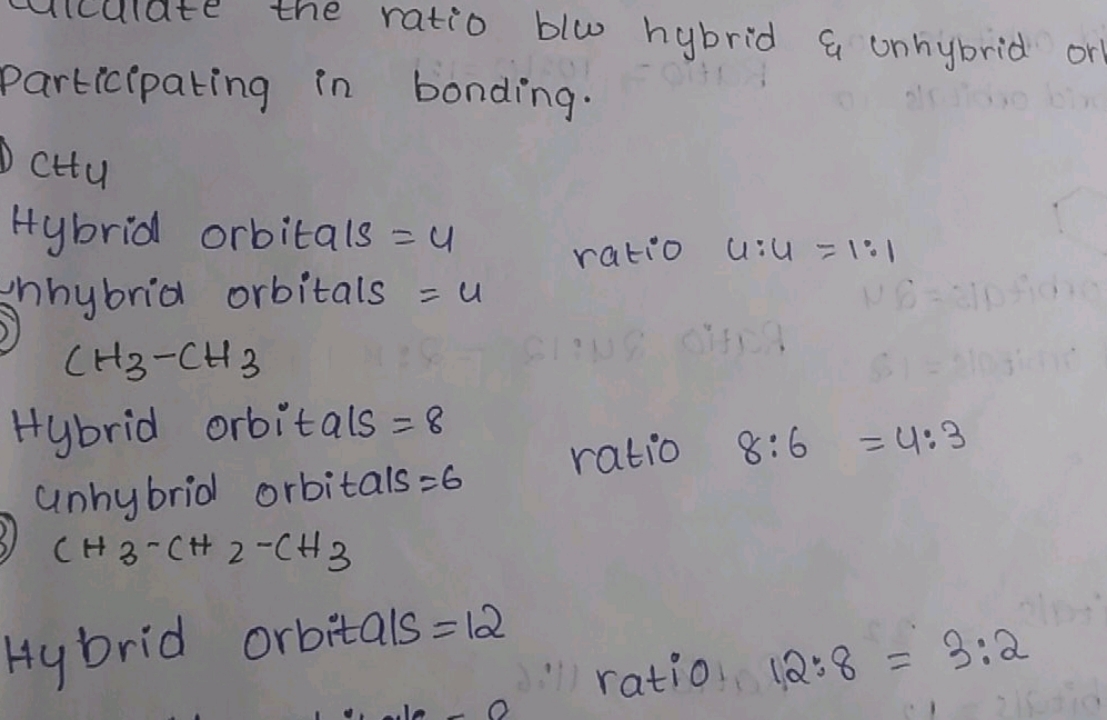 calculate the ratio b/w hybrid & unhybrid
participating in bonding.
① CH4
Hybrid orbitals = 4
unhybrid orbitals = 4
ratio 4:4 = 1:1
CH3-CH3
Hybrid orbitals = 8
unhybrid orbitals = 6
ratio 8:6 = 4:3
③ CH3-CH2-CH3
Hybrid orbitals = 12
ratio 12:8 = 3:2